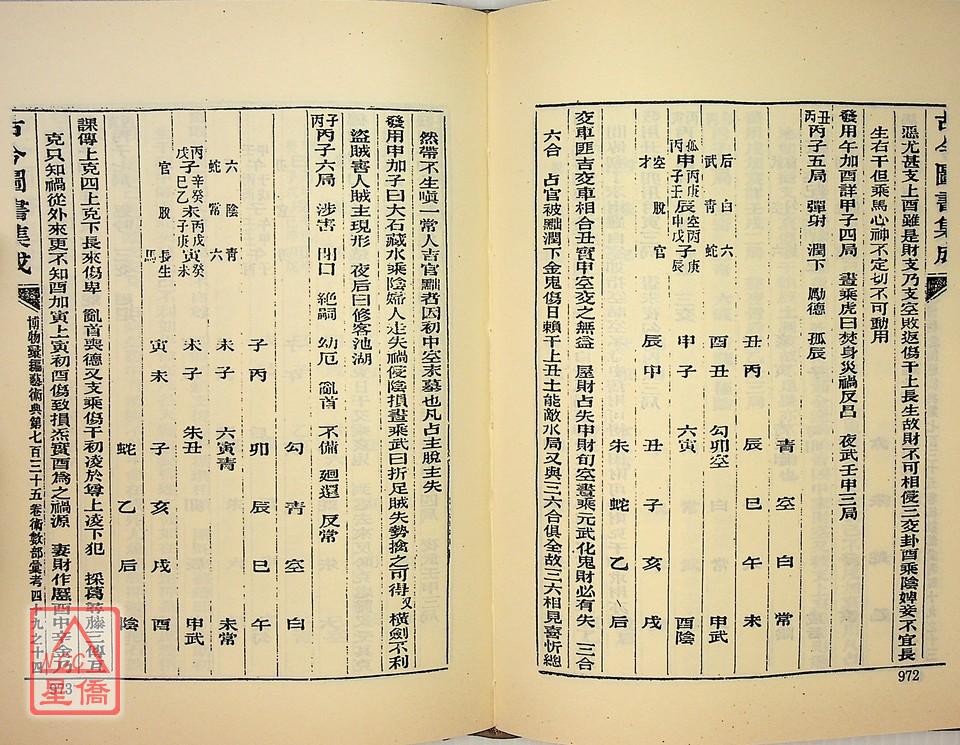 古今圖書集成
惡尤甚支上酉雖是財支乃支空敗返傷干上長生故財不可相侵三交卦酉乘陰婢妾不宜長
生右干但乘馬心神不定切不可動用
發用午加酉詳甲子四局　晝乘虎曰焚身災禍反昌　夜武壬甲三局
丑丙　丙子五局　彈射　潤下　勵德　孤辰
青　空　白　常
丑　丙　辰　巳　午　未
后　白　六　酉　丑　勾卯空　申武
武　青　蛇　申　子　六寅　酉陰
空　脫　官　辰　申　丑　子　亥　戌
才　朱　蛇　乙　后
交車匪吉交車相合丑實申空交之無益　屋財占失申財旬空晝乘元武化鬼財必有失　三合
六合　占官被黜潤下金鬼傷日賴干上丑土能敵水局又與三六合俱全故三六相見喜忻總
972
然帶不生嗔一常人吉官黜者因初中空末墓也凡占主脫主失
發用申加子曰大石藏水乘陰婚人走失禍侵陰損晝乘武曰折足賊失勢擒之可得　又橫劍不利
盜賊害人賊主現形　夜后曰修客池湖
子丙　丙子六局　涉害　閉口　絕嗣　幼厄　亂首　不備　迴還　反常
勾　青　空　白
子　丙　卯　辰　巳　午
六　陰　青　未　子　六寅青　未常
蛇　常　六　未　子　朱丑　申武
官　脫　長生　馬　寅　未　子　亥　戌　酉
蛇　乙　后　陰
課傳上克四上克下長來傷卑　亂首喪德又支乘傷干初凌於尊上凌下犯　採葛尋藤三傳互
克只知禍從外來更不知酉加寅上寅初酉傷致損炁實酉為之禍源　妻財作歷酉中辛金乃
古今圖書集成
博物彙編藝術典第七百三十五卷術數部彙考四十九之十四
973
星僑